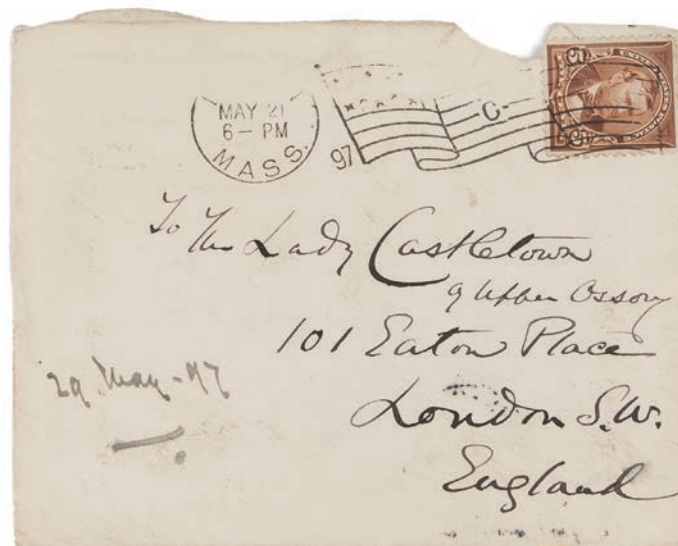 MAY 21
6 – PM
MASS.
97
C
To The Lady Castletown
of Upper Ossory
101 Eaton Place
London S.W.
England
29. May - 97